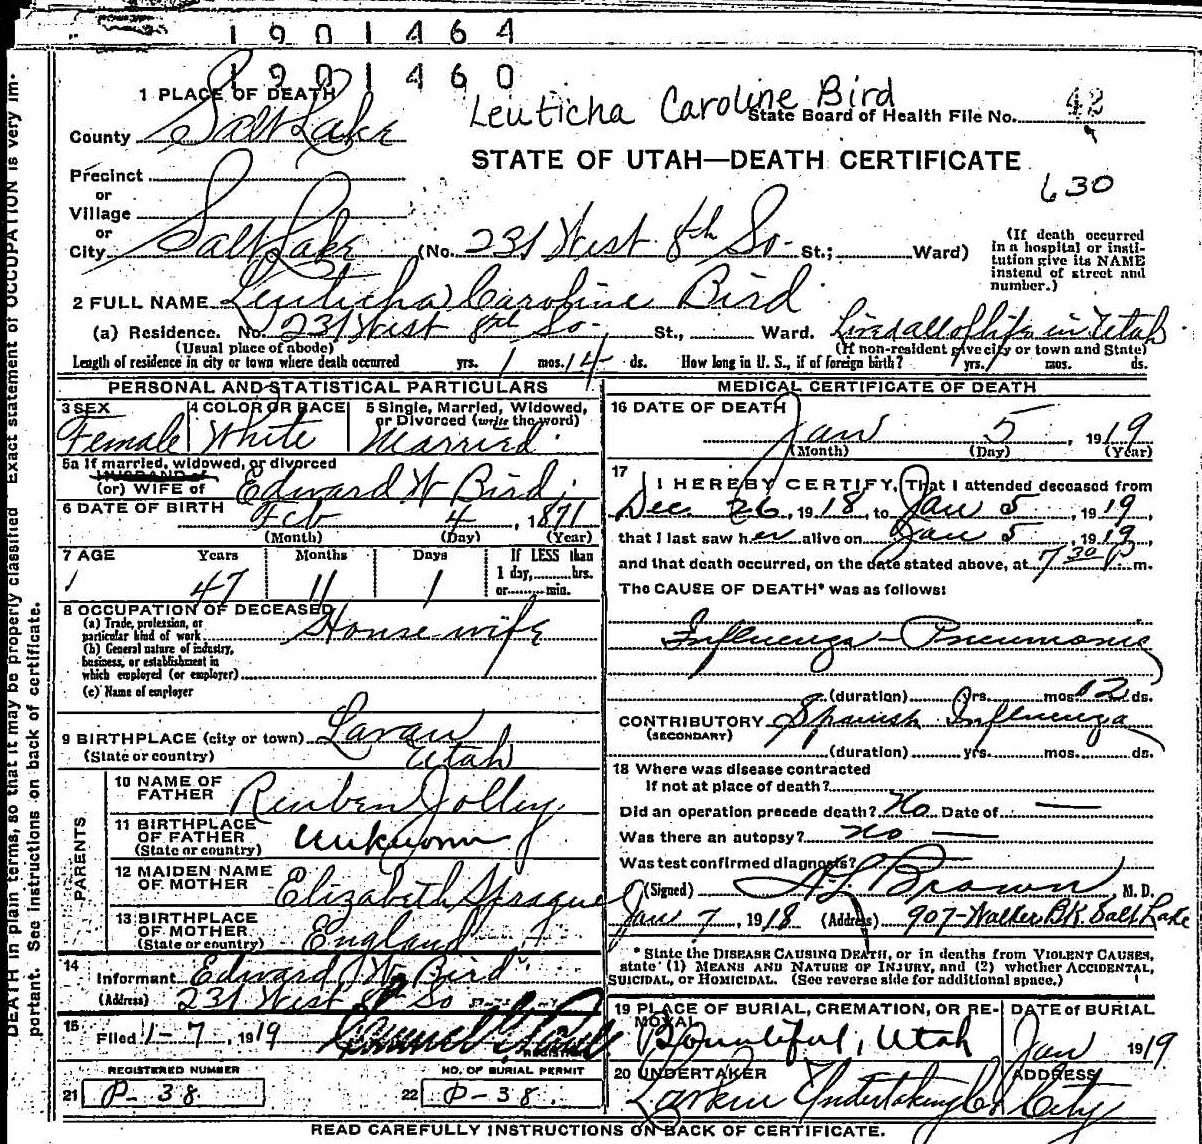 1901464
1901460
Leuticha Caroline Bird
State Board of Health File No. 42
STATE OF UTAH—DEATH CERTIFICATE
630
1 PLACE OF DEATH
County Salt Lake
Precinct
or
Village
or
City Salt Lake (No. 231 West 8th So. St.; Ward)
(If death occurred in a hospital or institution give its NAME instead of street and number.)
2 FULL NAME Leuticha Caroline Bird
(a) Residence. No. 231 West 8th So. St., Ward. Lived all of life in Utah
(Usual place of abode) (If non-resident give city or town and State)
Length of residence in city or town where death occurred yrs. 1 mos. 14 ds. How long in U. S., if of foreign birth? yrs. mos. ds.
PERSONAL AND STATISTICAL PARTICULARS
3 SEX Female
4 COLOR OR RACE White
5 Single, Married, Widowed, or Divorced (write the word) Married
5a If married, widowed, or divorced
HUSBAND of
(or) WIFE of Edward W Bird
6 DATE OF BIRTH Feb 4, 1871
(Month) (Day) (Year)
7 AGE Years Months Days If LESS than 1 day, hrs. or min.
47 11 1
8 OCCUPATION OF DECEASED
(a) Trade, profession, or particular kind of work House wife
(b) General nature of industry, business, or establishment in which employed (or employer)
(c) Name of employer
9 BIRTHPLACE (city or town) Lavan
(State or country) Utah
PARENTS
10 NAME OF FATHER Reuben Jolley
11 BIRTHPLACE OF FATHER (State or country) Unknown
12 MAIDEN NAME OF MOTHER Elizabeth Sprague
13 BIRTHPLACE OF MOTHER (State or country) England
14 Informant Edward W. Bird
(Address) 231 West 8th So
15 Filed 1-7, 1919
REGISTRAR
REGISTERED NUMBER
21 P-38
NO. OF BURIAL PERMIT
22 P-38.
MEDICAL CERTIFICATE OF DEATH
16 DATE OF DEATH
Jan 5, 1919
(Month) (Day) (Year)
17 I HEREBY CERTIFY, That I attended deceased from
Dec. 26, 1918, to Jan 5, 1919,
that I last saw her alive on Jan 5, 1919,
and that death occurred, on the date stated above, at 7 30 P m.
The CAUSE OF DEATH* was as follows:
Influenza - Pneumonia
(duration) yrs. mos. 12 ds.
CONTRIBUTORY Spanish Influenza
(SECONDARY)
(duration) yrs. mos. ds.
18 Where was disease contracted
If not at place of death?
Did an operation precede death? No Date of —
Was there an autopsy? no —
Was test confirmed diagnosis?
(Signed) Brown, M. D.
Jan 7, 1918 (Address) 907-Walker Bk. Salt Lake
* State the DISEASE CAUSING DEATH, or in deaths from VIOLENT CAUSES, state (1) MEANS AND NATURE OF INJURY, and (2) whether ACCIDENTAL, SUICIDAL, or HOMICIDAL. (See reverse side for additional space.)
19 PLACE OF BURIAL, CREMATION, OR REMOVAL
Bountiful, Utah
DATE of BURIAL
Jan 1919
20 UNDERTAKER
Larkin Undertaking Co
ADDRESS
City
READ CAREFULLY INSTRUCTIONS ON BACK OF CERTIFICATE.
DEATH in plain terms, so that it may be properly classified Exact statement of OCCUPATION is very im-
portant. See instructions on back of certificate.